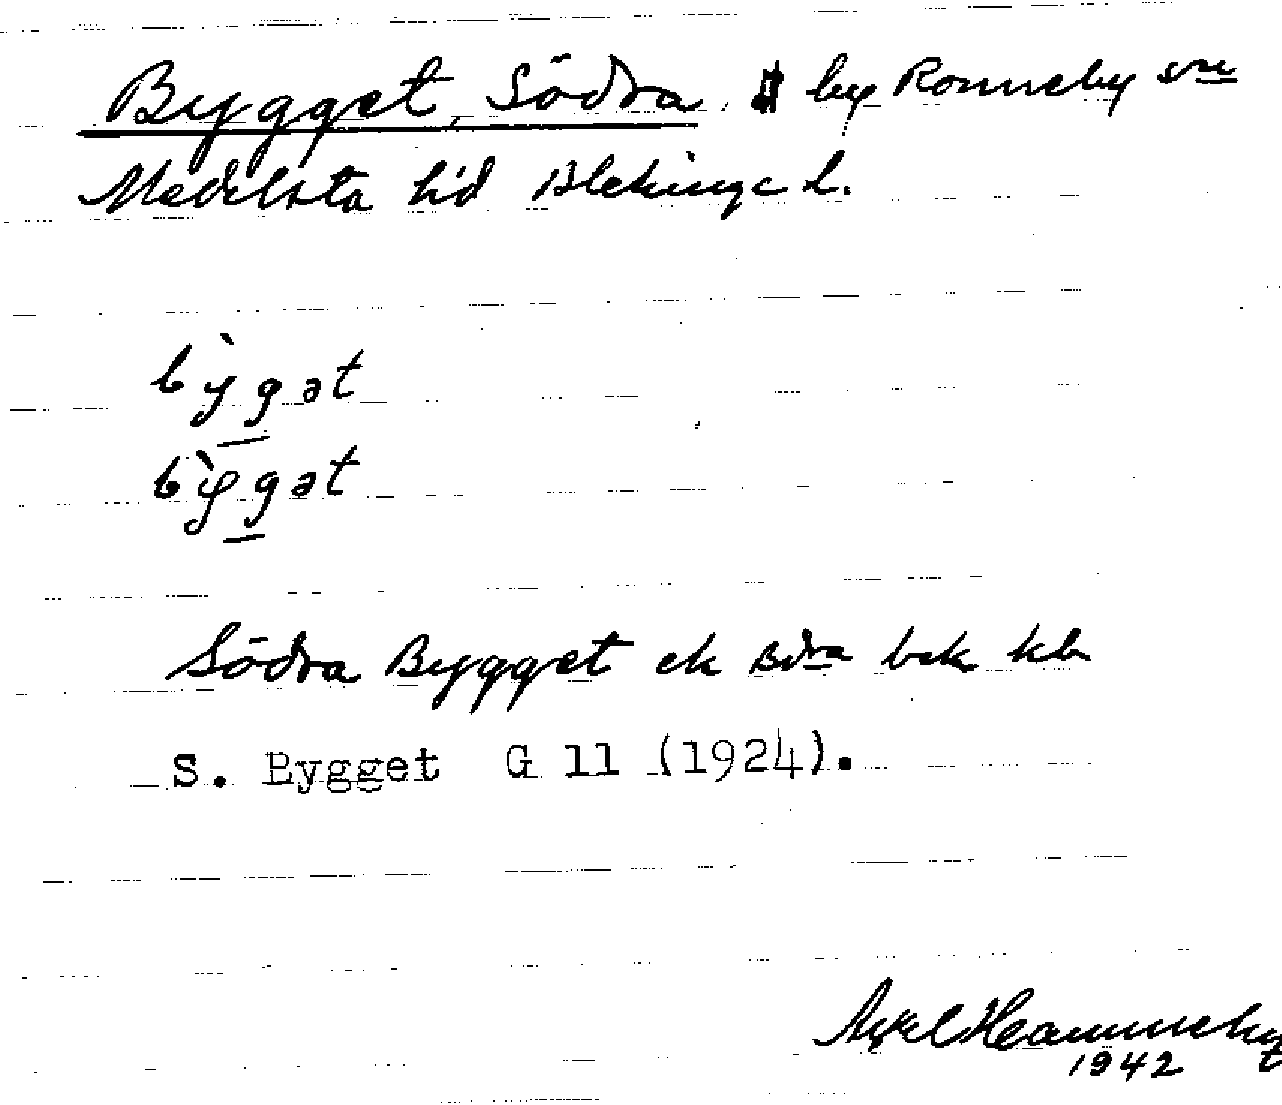 Bygget, Södra by Ronneby sn
Medelsta hd Blekinge l.
bỳgət
bỳgət
Södra Bygget ek bek kb
S. Bygget G 11 (1924).
Axel
1942